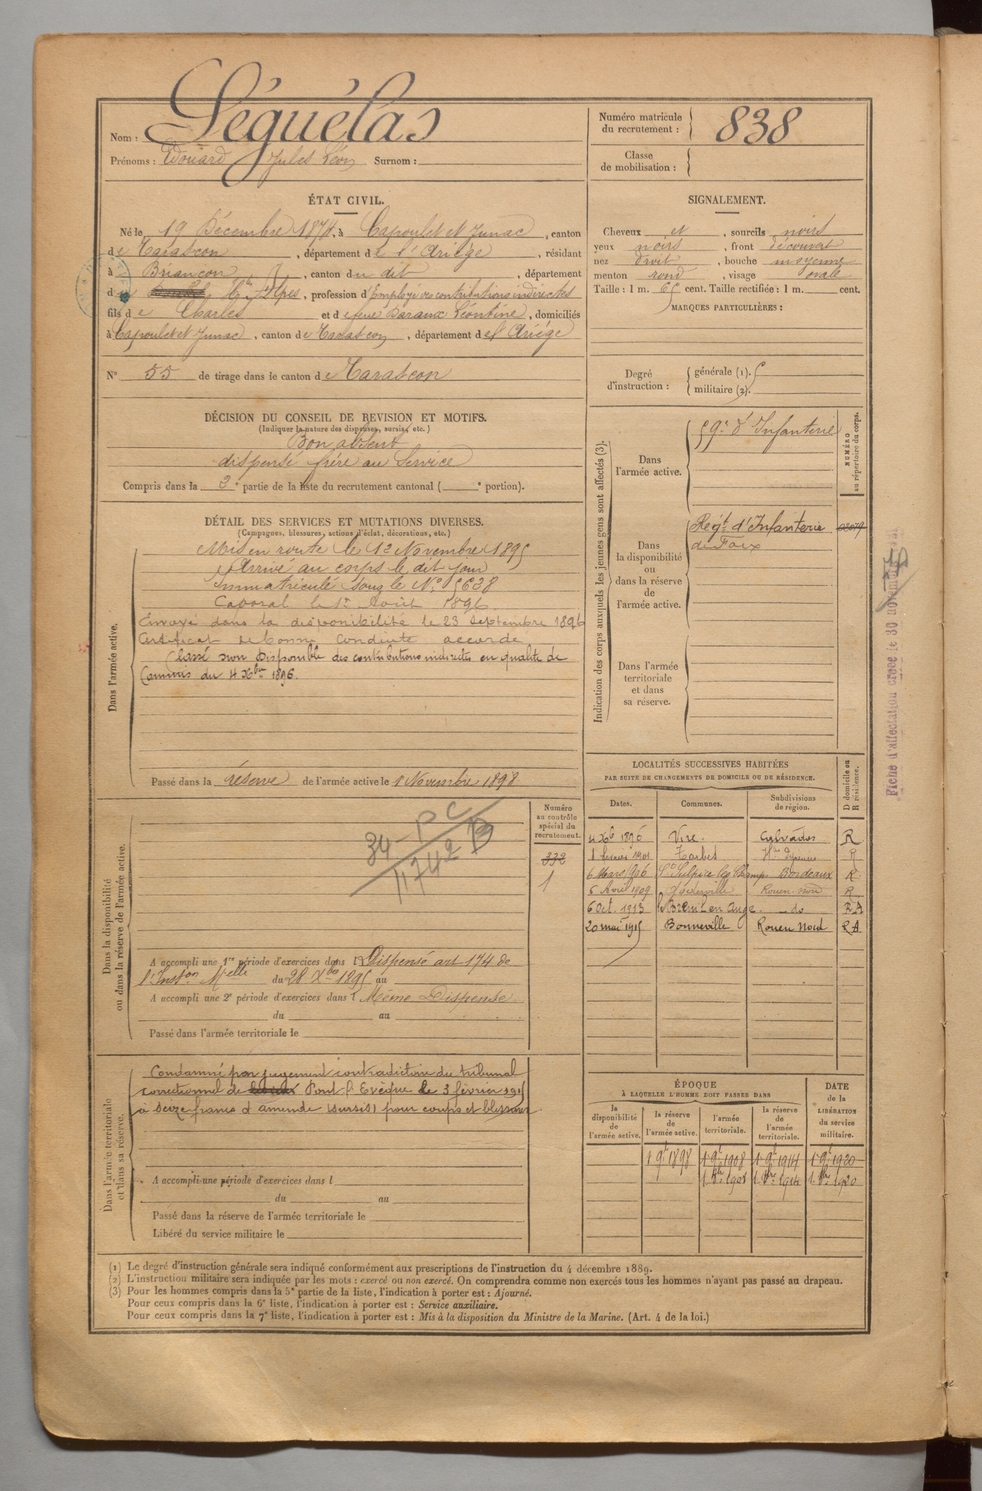 Nom : Séguélas
Prénoms : Edouard Jules Léon Surnom :
Numéro matricule du recrutement : 838
Classe de mobilisation :
ÉTAT CIVIL.
Né le 19 Décembre 1874, à Capoulet et Junac, canton
de Tarascon, département de l'Ariège, résidant
à Briançon, canton du dit, département
d Htes Alpes, profession d'employé des contributions indirectes
fils de Charles et de feue Baraux Léontine, domiciliés
à Capoulet et Junac, canton de Tarascon, département de l'Ariège
N° 55 de tirage dans le canton de Tarascon
DÉCISION DU CONSEIL DE REVISION ET MOTIFS.
(Indiquer la nature des dispenses, sursis, etc.)
Bon absent
dispensé frère au Service
Compris dans la 2e partie de la liste du recrutement cantonal ( e portion).
DÉTAIL DES SERVICES ET MUTATIONS DIVERSES.
(Campagnes, blessures, actions d'éclat, décorations, etc.)
Dans l'armée active.
Mis en route le 12 Novembre 1895
Arrivé au corps le dit jour
Immatriculé sous le N° 5638
Caporal le 1er Août 1896.
Envoyé dans la disponibilité le 23 Septembre 1896
Certificat de bonne conduite accordé
Classé non disponible des contributions indirectes en qualité de
Commis du 4 Xbre 1896.
Passé dans la réserve de l'armée active le 1 Novembre 1898
Dans la disponibilité ou dans la réserve de l'armée active.
34 PC
11742 B
Numéro au contrôle spécial du recrutement.
332
1
A accompli une 1re période d'exercices dans l Dispensé art 174 de
l'Inston Melle du 28 Xbre 1895 au
A accompli une 2e période d'exercices dans l Même Dispense
du au
Passé dans l'armée territoriale le
Dans l'armée territoriale et dans sa réserve.
Condamné par jugement contradictoire du tribunal
correctionnel de Pont l'Evêque le 3 février 1915
à seize francs d'amende (sursis) pour coups et blessures.
A accompli une période d'exercices dans l
du au
Passé dans la réserve de l'armée territoriale le
Libéré du service militaire le
SIGNALEMENT.
Cheveux et , sourcils noirs
yeux noirs , front découvert
nez droit , bouche moyenne
menton rond , visage ovale
Taille : 1 m. 65 cent. Taille rectifiée : 1 m. cent.
MARQUES PARTICULIÈRES :
Degré d'instruction : générale (1). militaire (2).
Indication des corps auxquels les jeunes gens sont affectés (3).
NUMÉRO au répertoire du corps.
Dans l'armée active.
59e d'Infanterie
Dans la disponibilité ou dans la réserve de l'armée active.
Régt d'Infanterie
de Foix
Dans l'armée territoriale et dans sa réserve.
Fiche d'affectation créée le 30 novembre
LOCALITÉS SUCCESSIVES HABITÉES
PAR SUITE DE CHANGEMENTS DE DOMICILE OU DE RÉSIDENCE.
D domicile ou R résidence.
Dates. Communes. Subdivisions de région.
4 Xb 1896 Vire. Calvados R
1 1901 Tarbes Htes Pyrénées R
6 Mars 1906 St Sulpice Bordeaux R
5 Avril 1909 Rouen-Nord R
6 Oct. 1913 le Breuil en Auge. do R A
20 mai 1915 Bonneville Rouen Nord R A
ÉPOQUE
À LAQUELLE L'HOMME DOIT PASSER DANS
la disponibilité de l'armée active.
la réserve de l'armée active.
l'armée territoriale.
la réserve de l'armée territoriale.
DATE de la LIBÉRATION du service militaire.
1 9e 1898 1 9e 1908 1 9e 1914 1 9e 1920
1 1908 1 1914 1 1920
(1) Le degré d'instruction générale sera indiqué conformément aux prescriptions de l'instruction du 4 décembre 1889.
(2) L'instruction militaire sera indiquée par les mots : exercé ou non exercé. On comprendra comme non exercés tous les hommes n'ayant pas passé au drapeau.
(3) Pour les hommes compris dans la 5e partie de la liste, l'indication à porter est : Ajourné.
Pour ceux compris dans la 6e liste, l'indication à porter est : Service auxiliaire.
Pour ceux compris dans la 7e liste, l'indication à porter est : Mis à la disposition du Ministre de la Marine. (Art. 4 de la loi.)